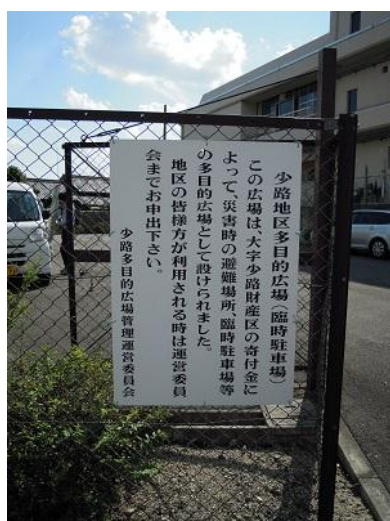 少路地区多目的広場（臨時駐車場）
この広場は、大字少路財産区の寄付金に
よって、災害時の避難場所、臨時駐車場等
の多目的広場として設けられました。
地区の皆様方が利用される時は運営委員
会までお申出下さい。
少路多目的広場管理運営委員会